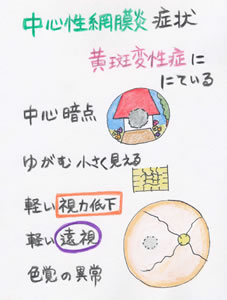 中心性網膜炎 症状
黄斑変性症に
にている
中心暗点
ゆがむ 小さく見える
軽い視力低下
軽い遠視
色覚の異常